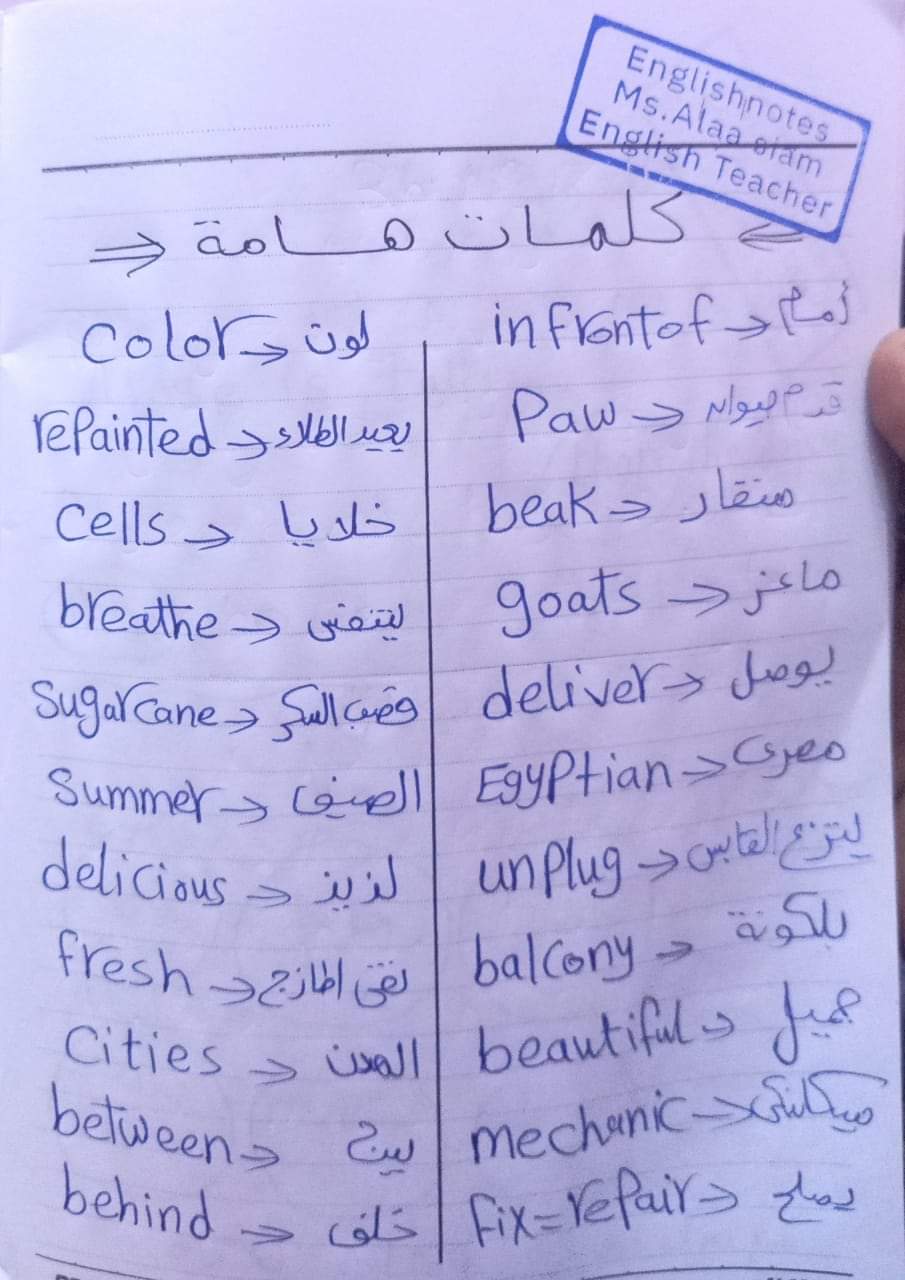 Englishnotes
Ms.Alaa siam
English Teacher
⇐ كلمات هامة ⇒
Color → لون
rePainted → يعيد الطلاء
Cells → خلايا
breathe → ليتنفس
Sugarcane → قصب السكر
Summer → الصيف
delicious → لزيز
fresh → نقى / طازج
Cities → المدن
between → بين
behind → خلف
in front of → أمام
Paw → قدم حيوان
beak → منقار
goats → ماعز
deliver → يوصل
EgyPtian → مصرى
unPlug → لينزع القابس
balcony → بلكونة
beautiful → جميل
mechanic → ميكانيكى
Fix = rePair → يصلح